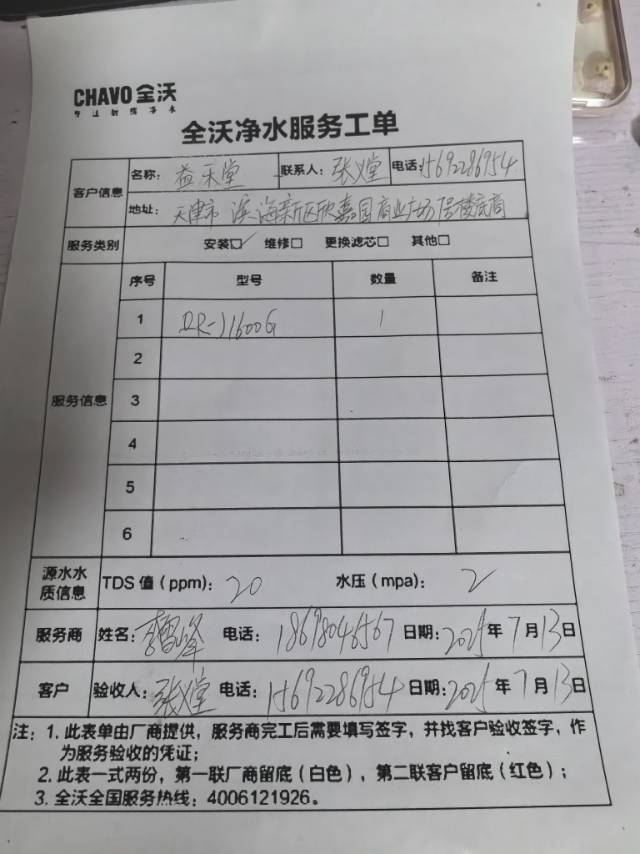 CHAVO 全沃
全沃净水服务工单
客户信息 名称： 益禾堂 联系人： 张义堂 电话： 15692286954
地址： 天津市滨海新区欣嘉园商业广场1层楼底商
服务类别 安装☑ 维修□ 更换滤芯□ 其他□
服务信息 序号 型号 数量 备注
1 DR-J1600G 1
2
3
4
5
6
源水水质信息 TDS 值（ppm）： 20 水压（mpa）： 2
服务商 姓名： 电话： 18698046567 日期： 2025 年 7 月 13 日
客户 验收人： 张义堂 电话： 15692286954 日期： 2025 年 7 月 13 日
注：1. 此表单由厂商提供，服务商完工后需要填写签字，并找客户验收签字，作
为服务验收的凭证；
2. 此表一式两份，第一联厂商留底（白色），第二联客户留底（红色）；
3. 全沃全国服务热线：4006121926。